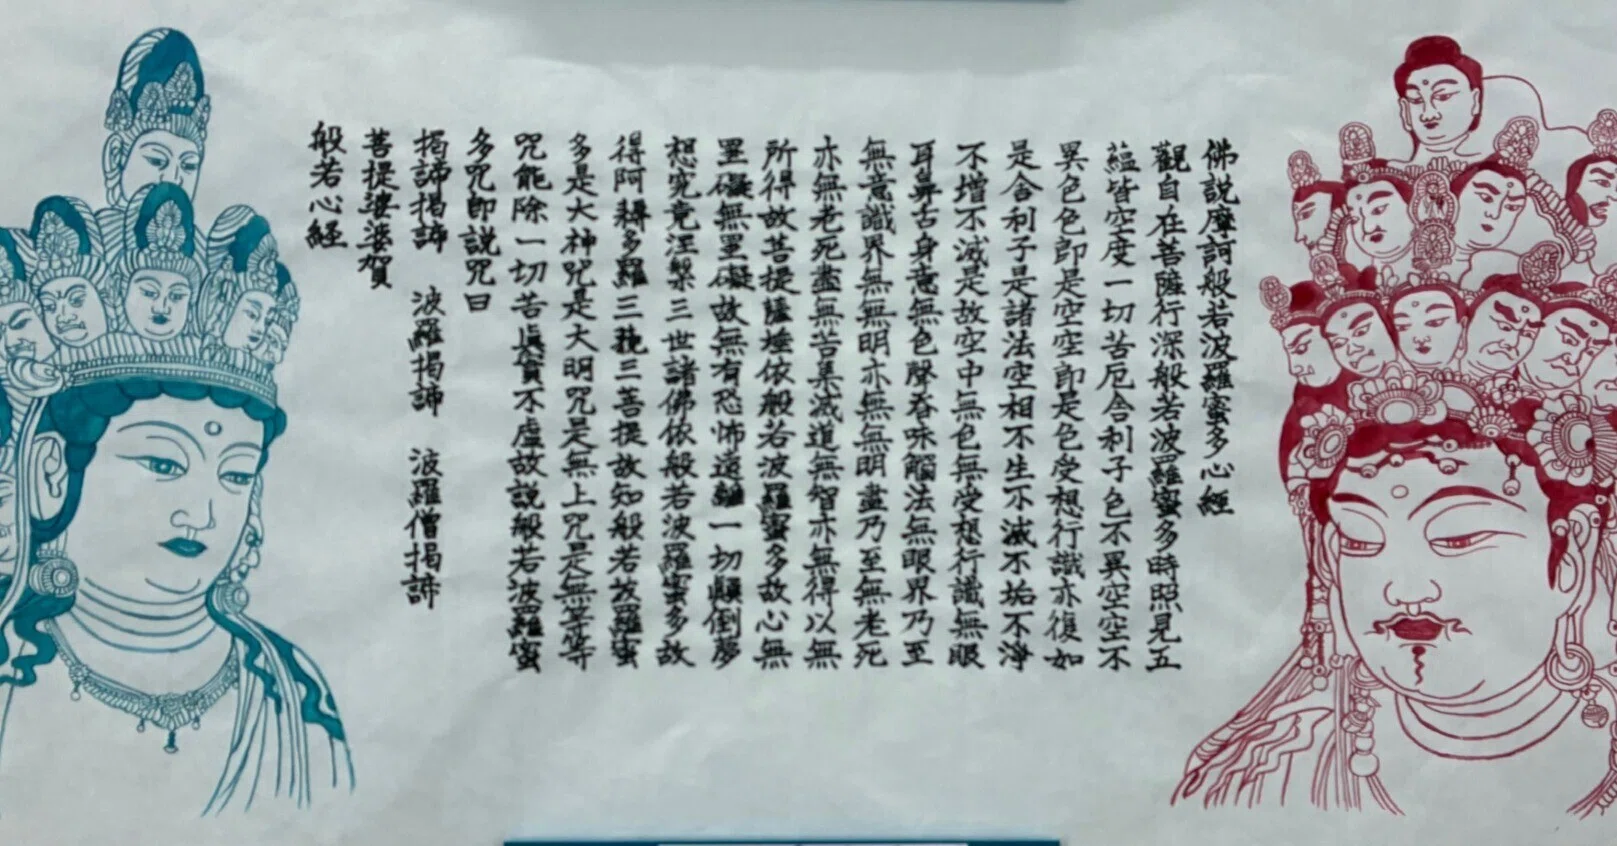 佛說摩訶般若波羅蜜多心經
觀自在菩薩行深般若波羅蜜多時照見五
蘊皆空度一切苦厄舍利子色不異空空不
異色色即是空空即是色受想行識亦復如
是舍利子是諸法空相不生不滅不垢不淨
不增不減是故空中無色無受想行識無眼
耳鼻舌身意無色聲香味觸法無眼界乃至
無意識界無無明亦無無明盡乃至無老死
亦無老死盡無苦集滅道無智亦無得以無
所得故菩提薩埵依般若波羅蜜多故心無
罣礙無罣礙故無有恐怖遠離一切顛倒夢
想究竟涅槃三世諸佛依般若波羅蜜多故
得阿耨多羅三藐三菩提故知般若波羅蜜
多是大神咒是大明咒是無上咒是無等等
咒能除一切苦眞實不虛故說般若波羅蜜
多咒即說咒曰
揭諦揭諦　波羅揭諦　波羅僧揭諦
菩提婆婆賀
般若心經